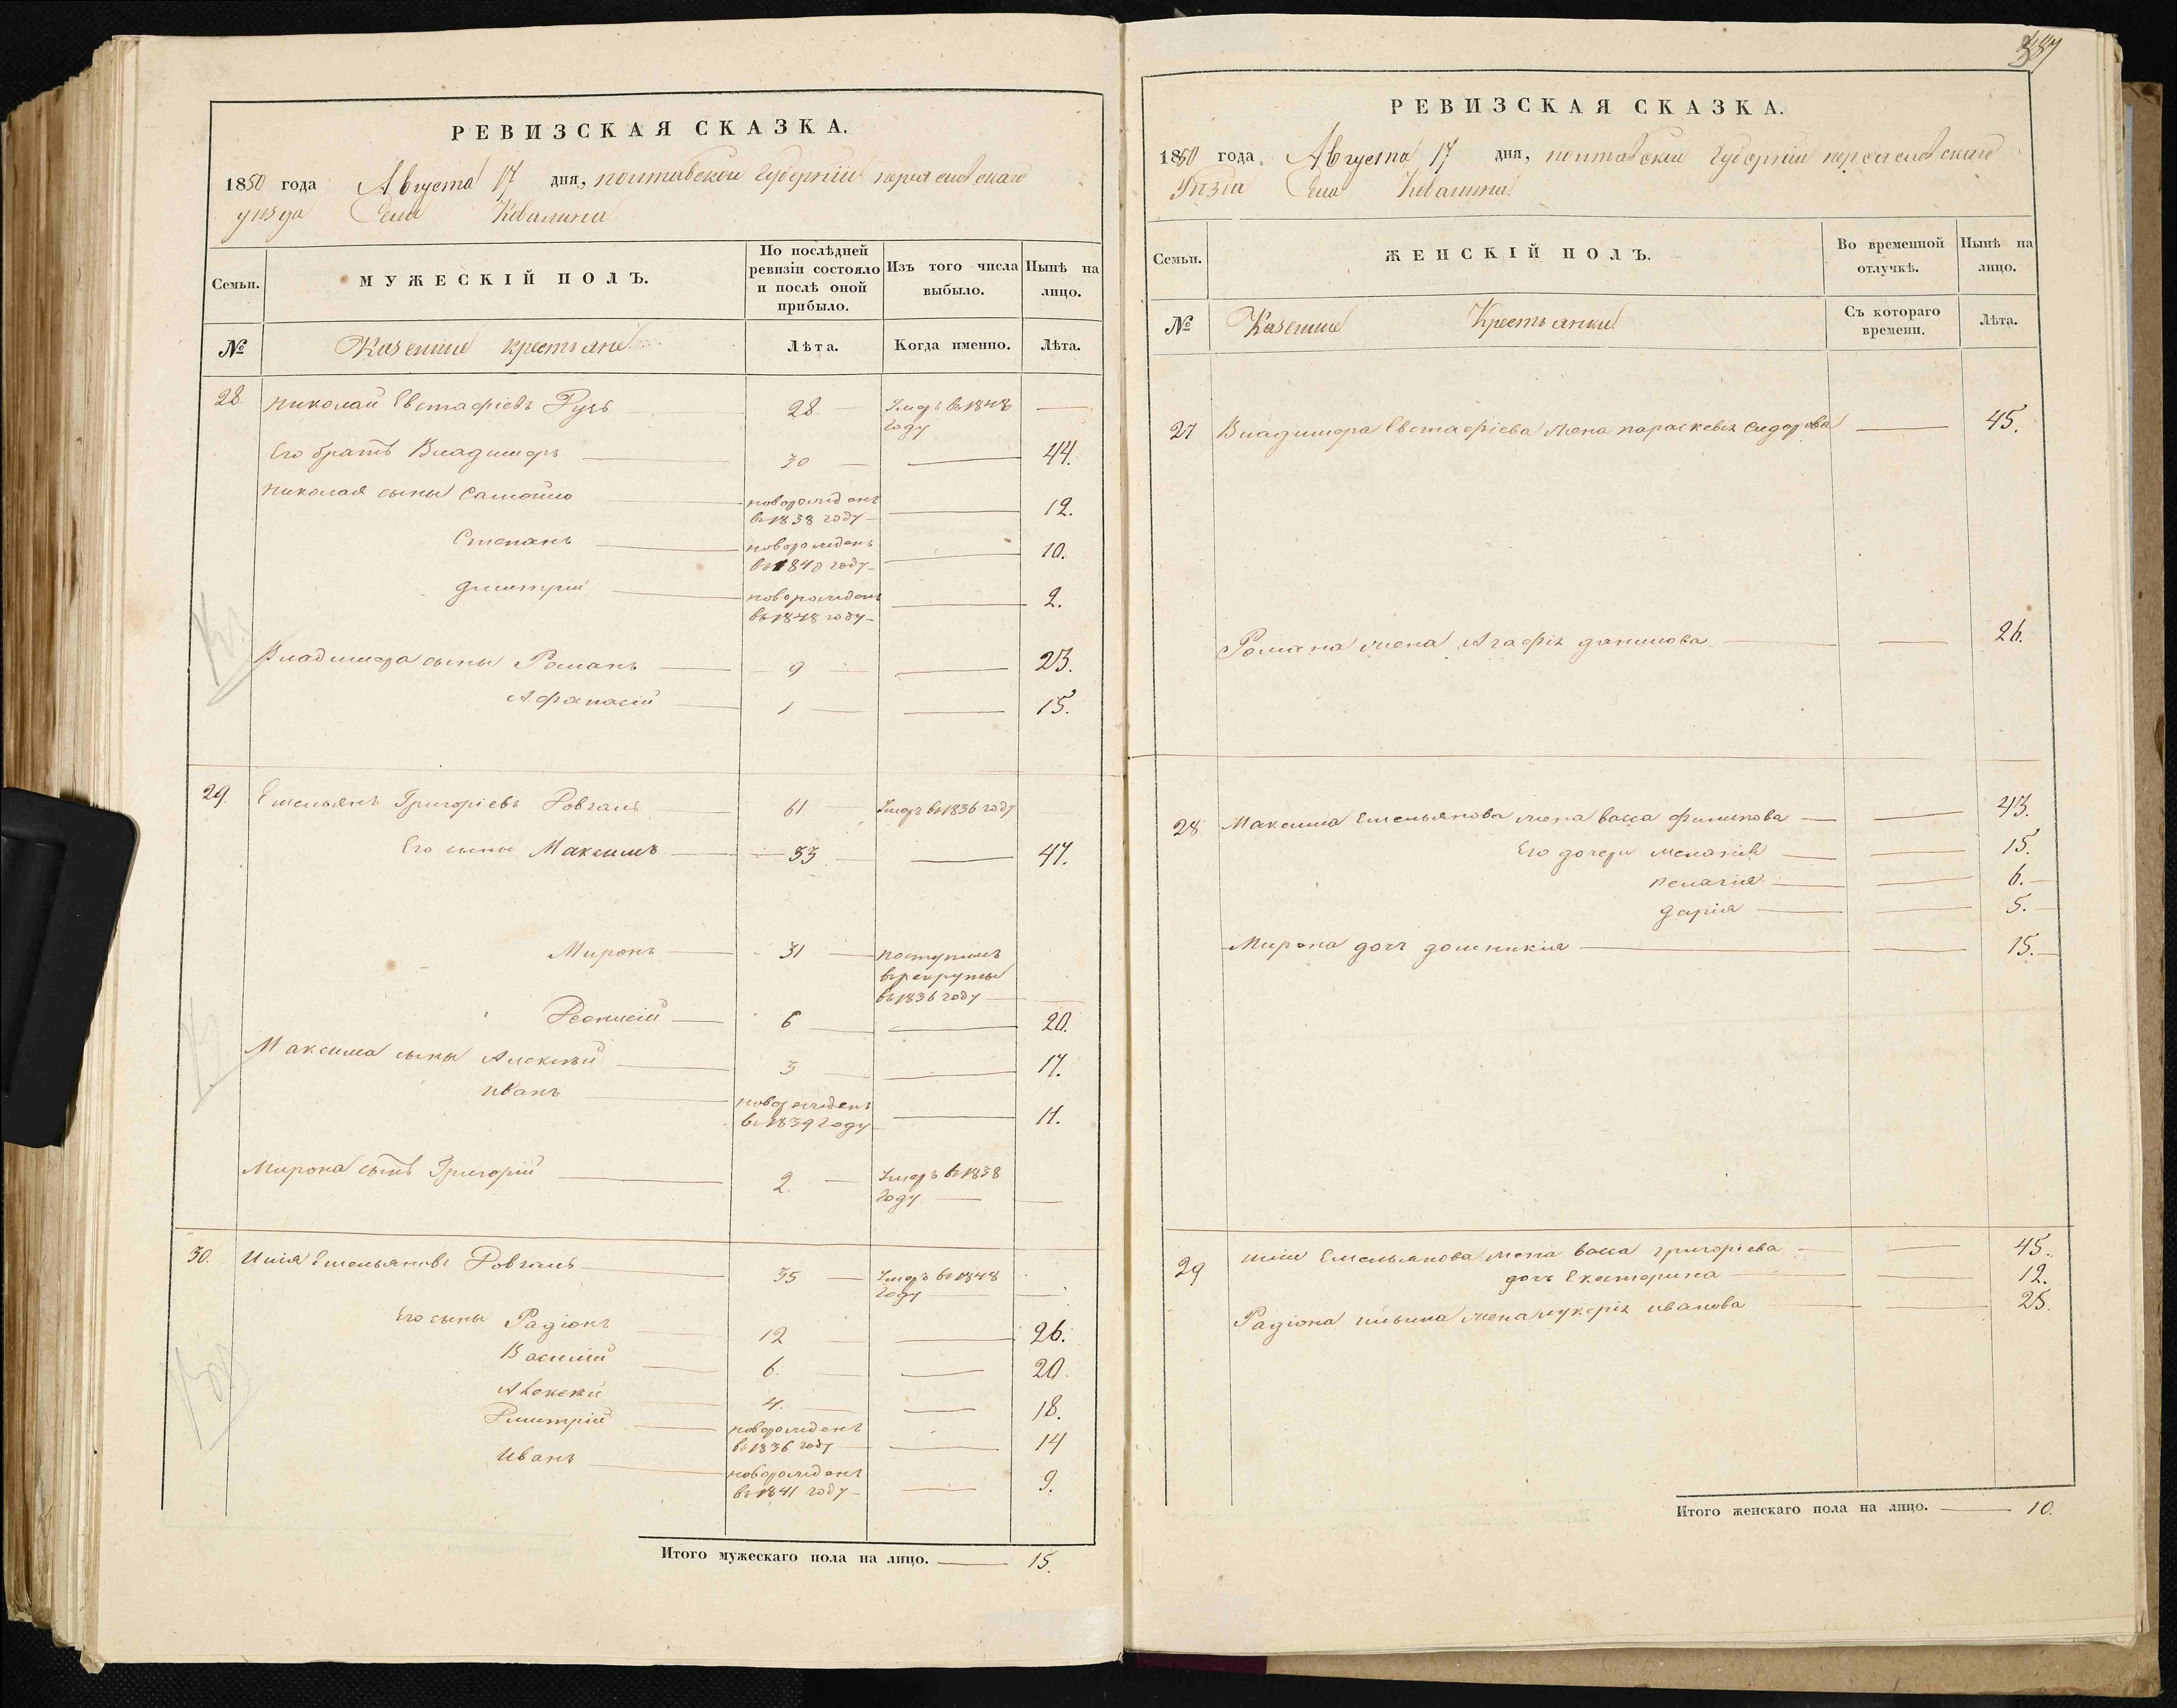 РЕВИЗСКАЯ СКАЗКА.
1850 года Августа 17 дня, полтавской Губерніи переяславскаго
уезда Села Ковалина
Семьи.
МУЖЕСКІЙ ПОЛЪ.
По послѣдней
ревизіи состояло
и послѣ оной
прибыло.
Изъ того числа
выбыло.
Нынѣ на
лицо.
№
Казенные крестьяне
Лѣта.
Когда именно.
Лѣта.
28 николай Евстафіевъ 28 Умеръ въ 1848
году
Его братъ Владимеръ 30 44.
николая сыны Самойло новорожденъ
въ 1838 году 12.
Степанъ новорожденъ
въ 1840 году 10.
дмитрій новорожденъ
въ 1848 году 2.
Владимера сыны Романъ 9 23.
Афанасій 1 15.
29. Емельянъ Григоріевъ Довгаль 61 Умеръ въ 1836 году
Его сыны Максимъ 33 47.
Миронъ 31 поступилъ
въ рекруты
въ 1836 году
6 20.
Максима сыны Алексѣй 3 17.
иванъ новорожденъ
въ 1839 году 11.
Мирона сынъ Григорій 2. Умеръ въ 1838
году
30. Илія Емельяновъ Довгаль 35 Умеръ въ 1848
году
Его сыны Радіонъ 12 26.
Василій 6. 20.
Алексѣй 4. 18.
Дмитрій новорожденъ
въ 1836 году 14
Иванъ новорожденъ
въ 1841 году 9.
Итого мужескаго пола на лицо. 15.
387
РЕВИЗСКАЯ СКАЗКА.
1850 года Августа 17 дня, полтавской Губерніи переяславскаго
Уезда Села Ковалина
Семьи.
ЖЕНСКІЙ ПОЛЪ.
Во временной
отлучкѣ.
Нынѣ на
лицо.
№
Казенные Крестьянки
Съ котораго
времени.
Лѣта.
27 Владимера Евстафіева жена параскевія Сидорова 45.
Романа жена Агафія данилова 26.
28 Максима Емельянова жена васса филипова 43.
Его дочери меланія 15.
пелагія 6.
дарія 5.
Мирона дочь домникія 15.
29 иліи Емельянова жена васса григоріева 45.
дочь Екатерина 12.
Радіона ильина жена лукерія иванова 25.
Итого женскаго пола на лицо. 10.